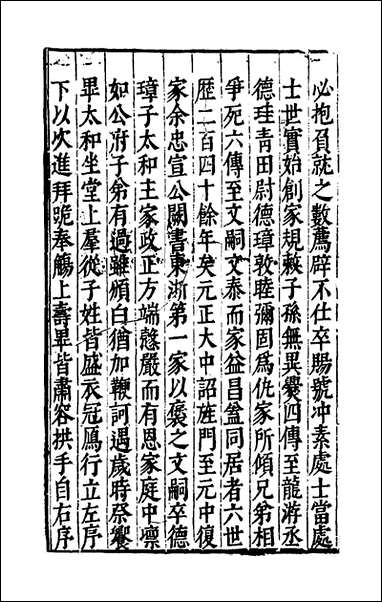 必抱負就之數薦辟不仕卒賜號冲素處士當處
士世實始創家規敕子孫無異爨四傳至龍游丞
德珪靑田尉德璋敦睦彌固為仇家所傾兄弟相
爭死六傳至文嗣文泰而家益昌盒同居者六世
歷二百四十餘年矣元正大中詔旌門至元中復
家余忠宣公闕書東浙第一家以褒之文嗣卒德
璋子太和主家政正方端慤嚴而有恩家庭中凛
如公府子弟有過雖頒白猶加鞭訶遇歲時祭饗
畢太和坐堂上羣從子姓皆盛衣冠鴈行立左序
下以次進拜跪奉觴上壽畢皆肅容拱手自右序